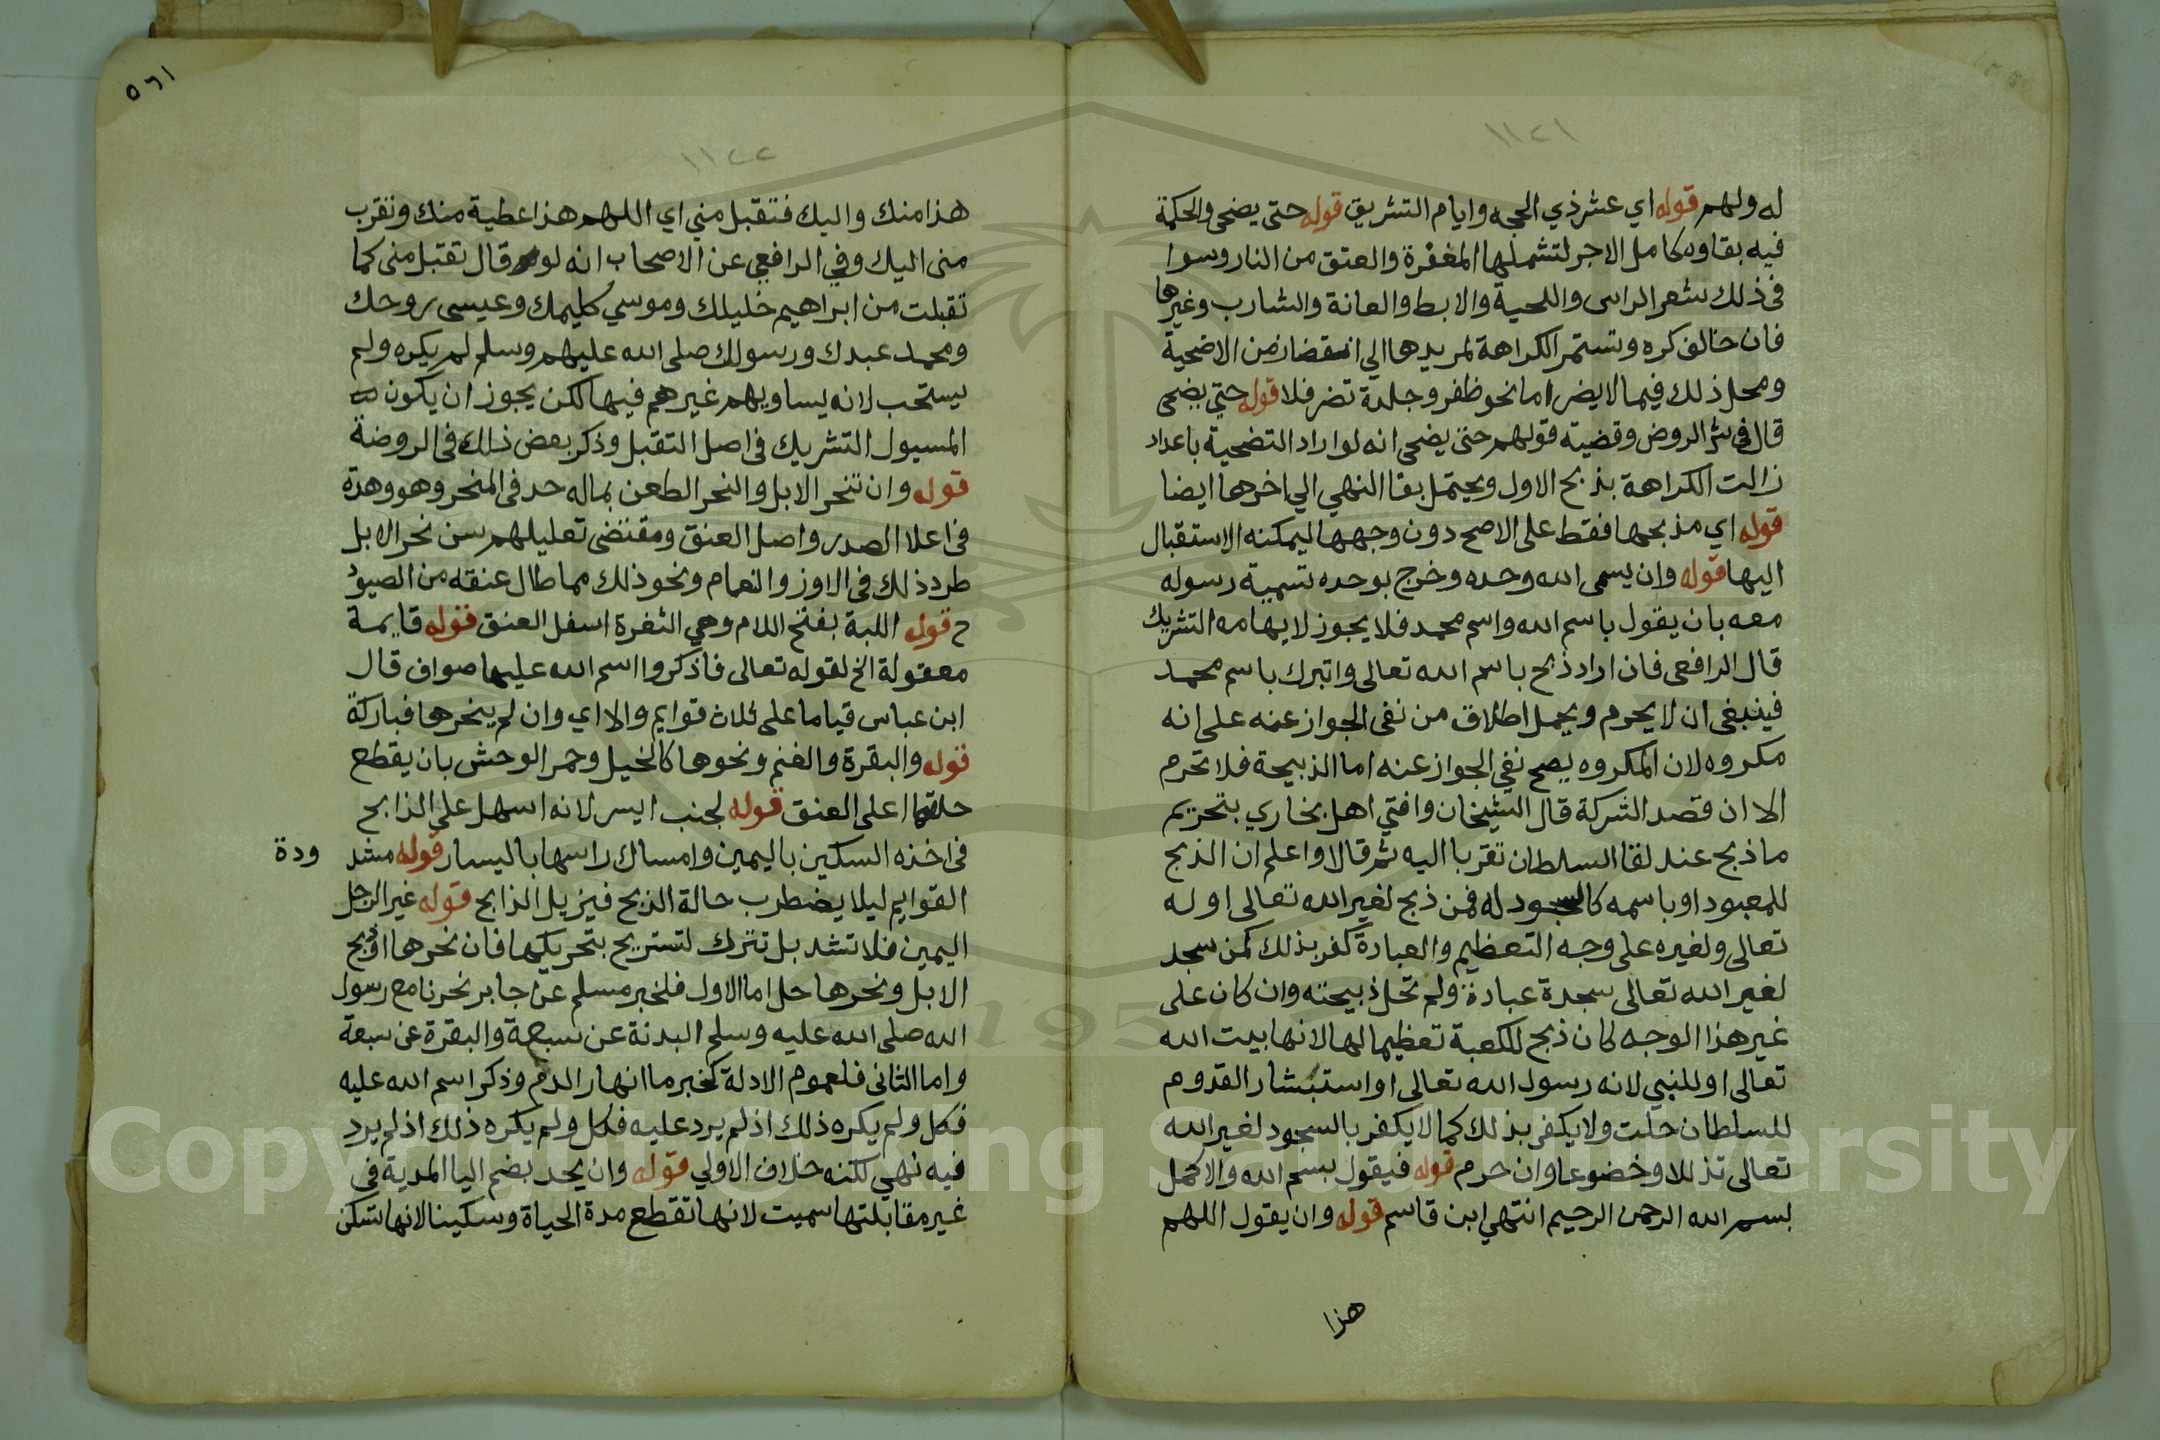 ١١٢١
له ولهم قوله اي عشر ذي الحجه وايام التشريق قوله حتى يضحى والحكمة
فيه بقاوه كامل الاجر لتشملها المغفرة والعتق من النار وسوا
في ذلك شعر الراس واللحية والابط والعانة والشارب وغيرها
فان خالف كره وتستمر الكراهة لمريدها الي انقضا زمن الاضحية
ومحل ذلك فيما لا يضر اما نحو ظفر وجلدة تضر فلا قوله حتي يضحى
قال في شر الروض وقضية قولهم حتى يضحى انه لو اراد التضحية باعداد
زالت الكراهة بذبح الاول ويحتمل بقا النهي الي اخرها ايضا
قوله اي مذبحها فقط على الاصح دون وجهها ليمكنه الاستقبال
اليها قوله وان يسمى الله وحده وخرج بوحده تسمية رسوله
معه بان يقول باسم الله واسم محمد فلا يجوز لايهامه التشريك
قال الرافعى فان اراد ذبح باسم الله تعالى واتبرك باسم محمد
فينبغى ان لا يحرم ويحمل اطلاق من نفى الجواز عنه على انه
مكروه لان المكروه يصح نفي الجواز عنه اما الذبيحة فلا تحرم
الا ان قصد الشركة قال الشيخان وافتي اهل بخاري بتحريم
ما ذبح عند لقا السلطان تقربا اليه ثم قالا واعلم ان الذبح
للمعبود او باسمه كالسجود له فمن ذبح لغير الله تعالى او له
تعالى ولغيره على وجه التعظيم والعبادة كفر بذلك كمن سجد
لغير الله تعالى سجدة عبادة ولم تحل ذبيحته وان كان على
غير هذا الوجه كان ذبح للكعبة تعظيما لها لانها بيت الله
تعالى او للنبي لانه رسول الله تعالى او استبشار القدوم
للسلطان حلت ولا يكفى بذلك كما لا يكفر بالسجود لغير الله
تعالى تذللا وخضوعا وان حرم قوله فيقول بسم الله والاكمل
بسم الله الرحمن الرحيم انتهي ابن قاسم قوله وان يقول اللهم
هذا
٥٦١
١١٢٢
هذا منك واليك فتقبل مني اي اللهم هذا عطية منك وتقرب
منى اليك وفي الرافعي عن الاصحاب انه لو قال تقبل منى كما
تقبلت من ابراهيم خليلك وموسي كليمك وعيسى روحك
ومحمد عبدك ورسولك صلى الله عليهم وسلم لم يكره ولم
يستحب لانه يساويهم غيرهم فيها لكن يجوز ان يكون
المسيول التشريك في اصل التقبل وذكر بعض ذلك في الروضة
قوله وان تنحر الابل والنحر الطعن بماله حد في المنحر وهو وهدة
في اعلا الصدر واصل العنق ومقتضى تعليلهم سن نحر الابل
طرد ذلك في الاوز والنعام ونحو ذلك مما طال عنقه من الصيود
ح قوله اللبة بفتح اللام وهي الثغرة اسفل العنق قوله قايمة
معقولة الخ لقوله تعالى فاذكروا اسم الله عليها صواف قال
ابن عباس قياما على ثلاث قوايم والا اي وان لم ينحرها فباركة
قوله والبقرة والغنم ونحوها كالخيل وحمر الوحش بان يقطع
حلقها اعلى العنق قوله لجنب ايسر لانه اسهل علي الذابح
في اخذه السكين باليمين وامساك راسها باليسار قوله مشد ودة
القوايم ليلا يضطرب حالة الذبح فيزيل الذابح قوله غير الرجل
اليمين فلا تشد بل تترك لتستريح بتحريكها فان نحرها او ذبح
الابل ونحرها حل اما الاول فلخبر مسلم عن جابر نحرنا مع رسول
الله صلى الله عليه وسلم البدنة عن سبعة والبقرة عن سبعة
واما الثانى فلعموم الادلة كخبر ما انهار الدم وذكر اسم الله عليه
فكل ولم يكره ذلك اذ لم يرد عليه فكل ولم يكره ذلك اذ لم يرد
فيه نهي لكنه خلاف الاولي قوله وان يحد بضم اليا المدية في
غير مقابلتها سميت لانها تقطع مدة الحياة وسكينا لانها تسكن
Copyright © King Saud University
1957